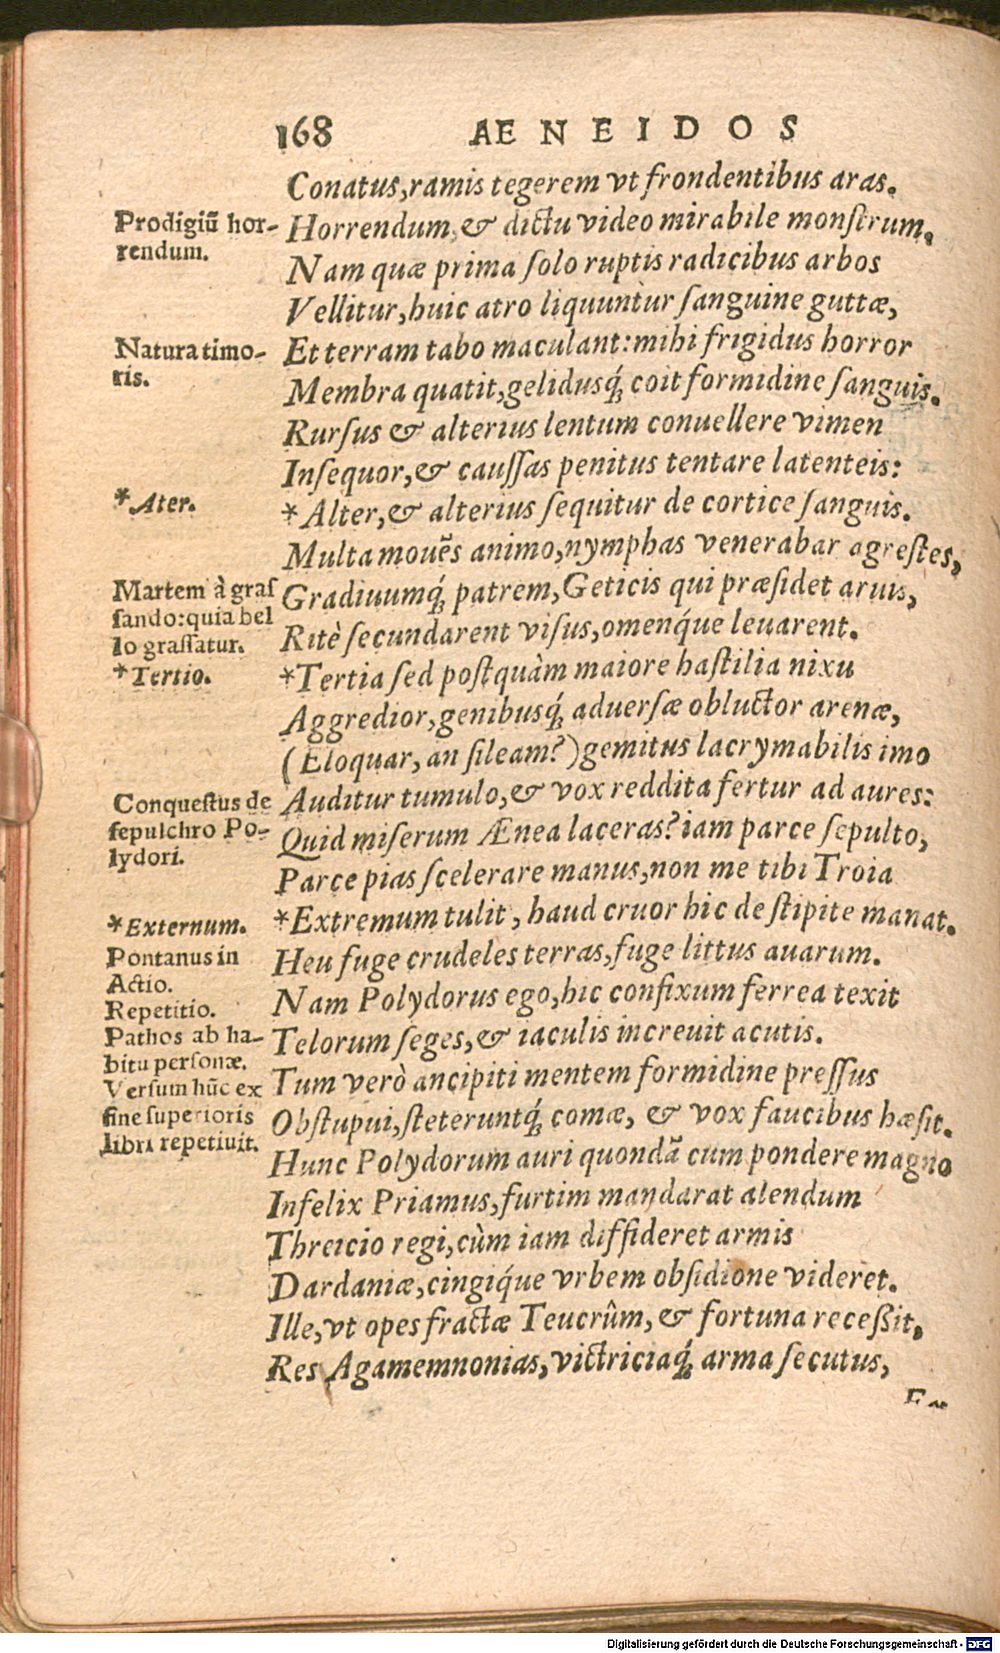 168 AENEIDOS
Conatus,ramis tegerem vt frondentibus aras.
Prodigiũ hor-
rendum.
Horrendum, & dictu video mirabile monſtrum.
Nam quæ prima ſolo ruptis radicibus arbos
Vellitur,huic atro liquuntur ſanguine guttæ,
Natura timo-
ris.
Et terram tabo maculant:mihi frigidus horror
Membra quatit,geliduſq́; coit formidine ſanguis.
Rurſus & alterius lentum conuellere vimen
Inſequor,& cauſſas penitus tentare latenteis:
*Ater.
*Alter,& alterius ſequitur de cortice ſanguis.
Multa mouẽs animo,nymphas venerabar agreſtes,
Martem à graſ
ſando:quia bel
lo graſſatur.
Gradiuumq́; patrem,Geticis qui præſidet aruis,
Ritè ſecundarent viſus,omenq́ue leuarent.
*Tertio.
*Tertia ſed poſtquàm maiore haſtilia nixu
Aggredior,genibuſq́; aduerſæ obluctor arenæ,
(Eloquar,an ſileam?)gemitus lacrymabilis imo
Conqueſtus de
ſepulchro Po-
lydori.
Auditur tumulo,& vox reddita fertur ad aures:
Quid miſerum Ænea laceras?iam parce ſepulto,
Parce pias ſcelerare manus,non me tibi Troia
*Externum.
*Extremum tulit, haud cruor hic de ſtipite manat.
Pontanus in
Actio.
Heu fuge crudeles terras,fuge littus auarum.
Repetitio.
Nam Polydorus ego,hic confixum ferrea texit
Pathos ab ha-
bitu perſonæ.
Telorum ſeges,& iaculis increuit acutis.
Tum verò ancipiti mentem formidine preſſus
Verſum hũc ex
fine ſuperioris
libri repetiuit.
Obſtupui,ſteteruntq́; comæ, & vox faucibus hæſit.
Hunc Polydorum auri quondã cum pondere magno
Infelix Priamus,furtim mandarat alendum
Threicio regi,cùm iam diffideret armis
Dardaniæ,cingiq́ue vrbem obſidione videret.
Ille,vt opes fractæ Teucrûm,& fortuna receßit,
Res Agamemnonias,victriciaq́; arma ſecutus,
Digitalisierung gefördert durch die Deutsche Forschungsgemeinschaft - DFG